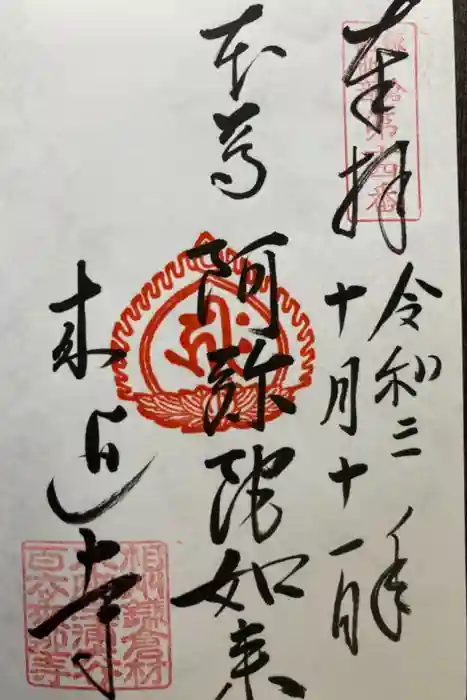 奉拝
第十四番
令和三年
十月十一日
本尊
阿弥陀如来
来迎寺
相州鎌倉材